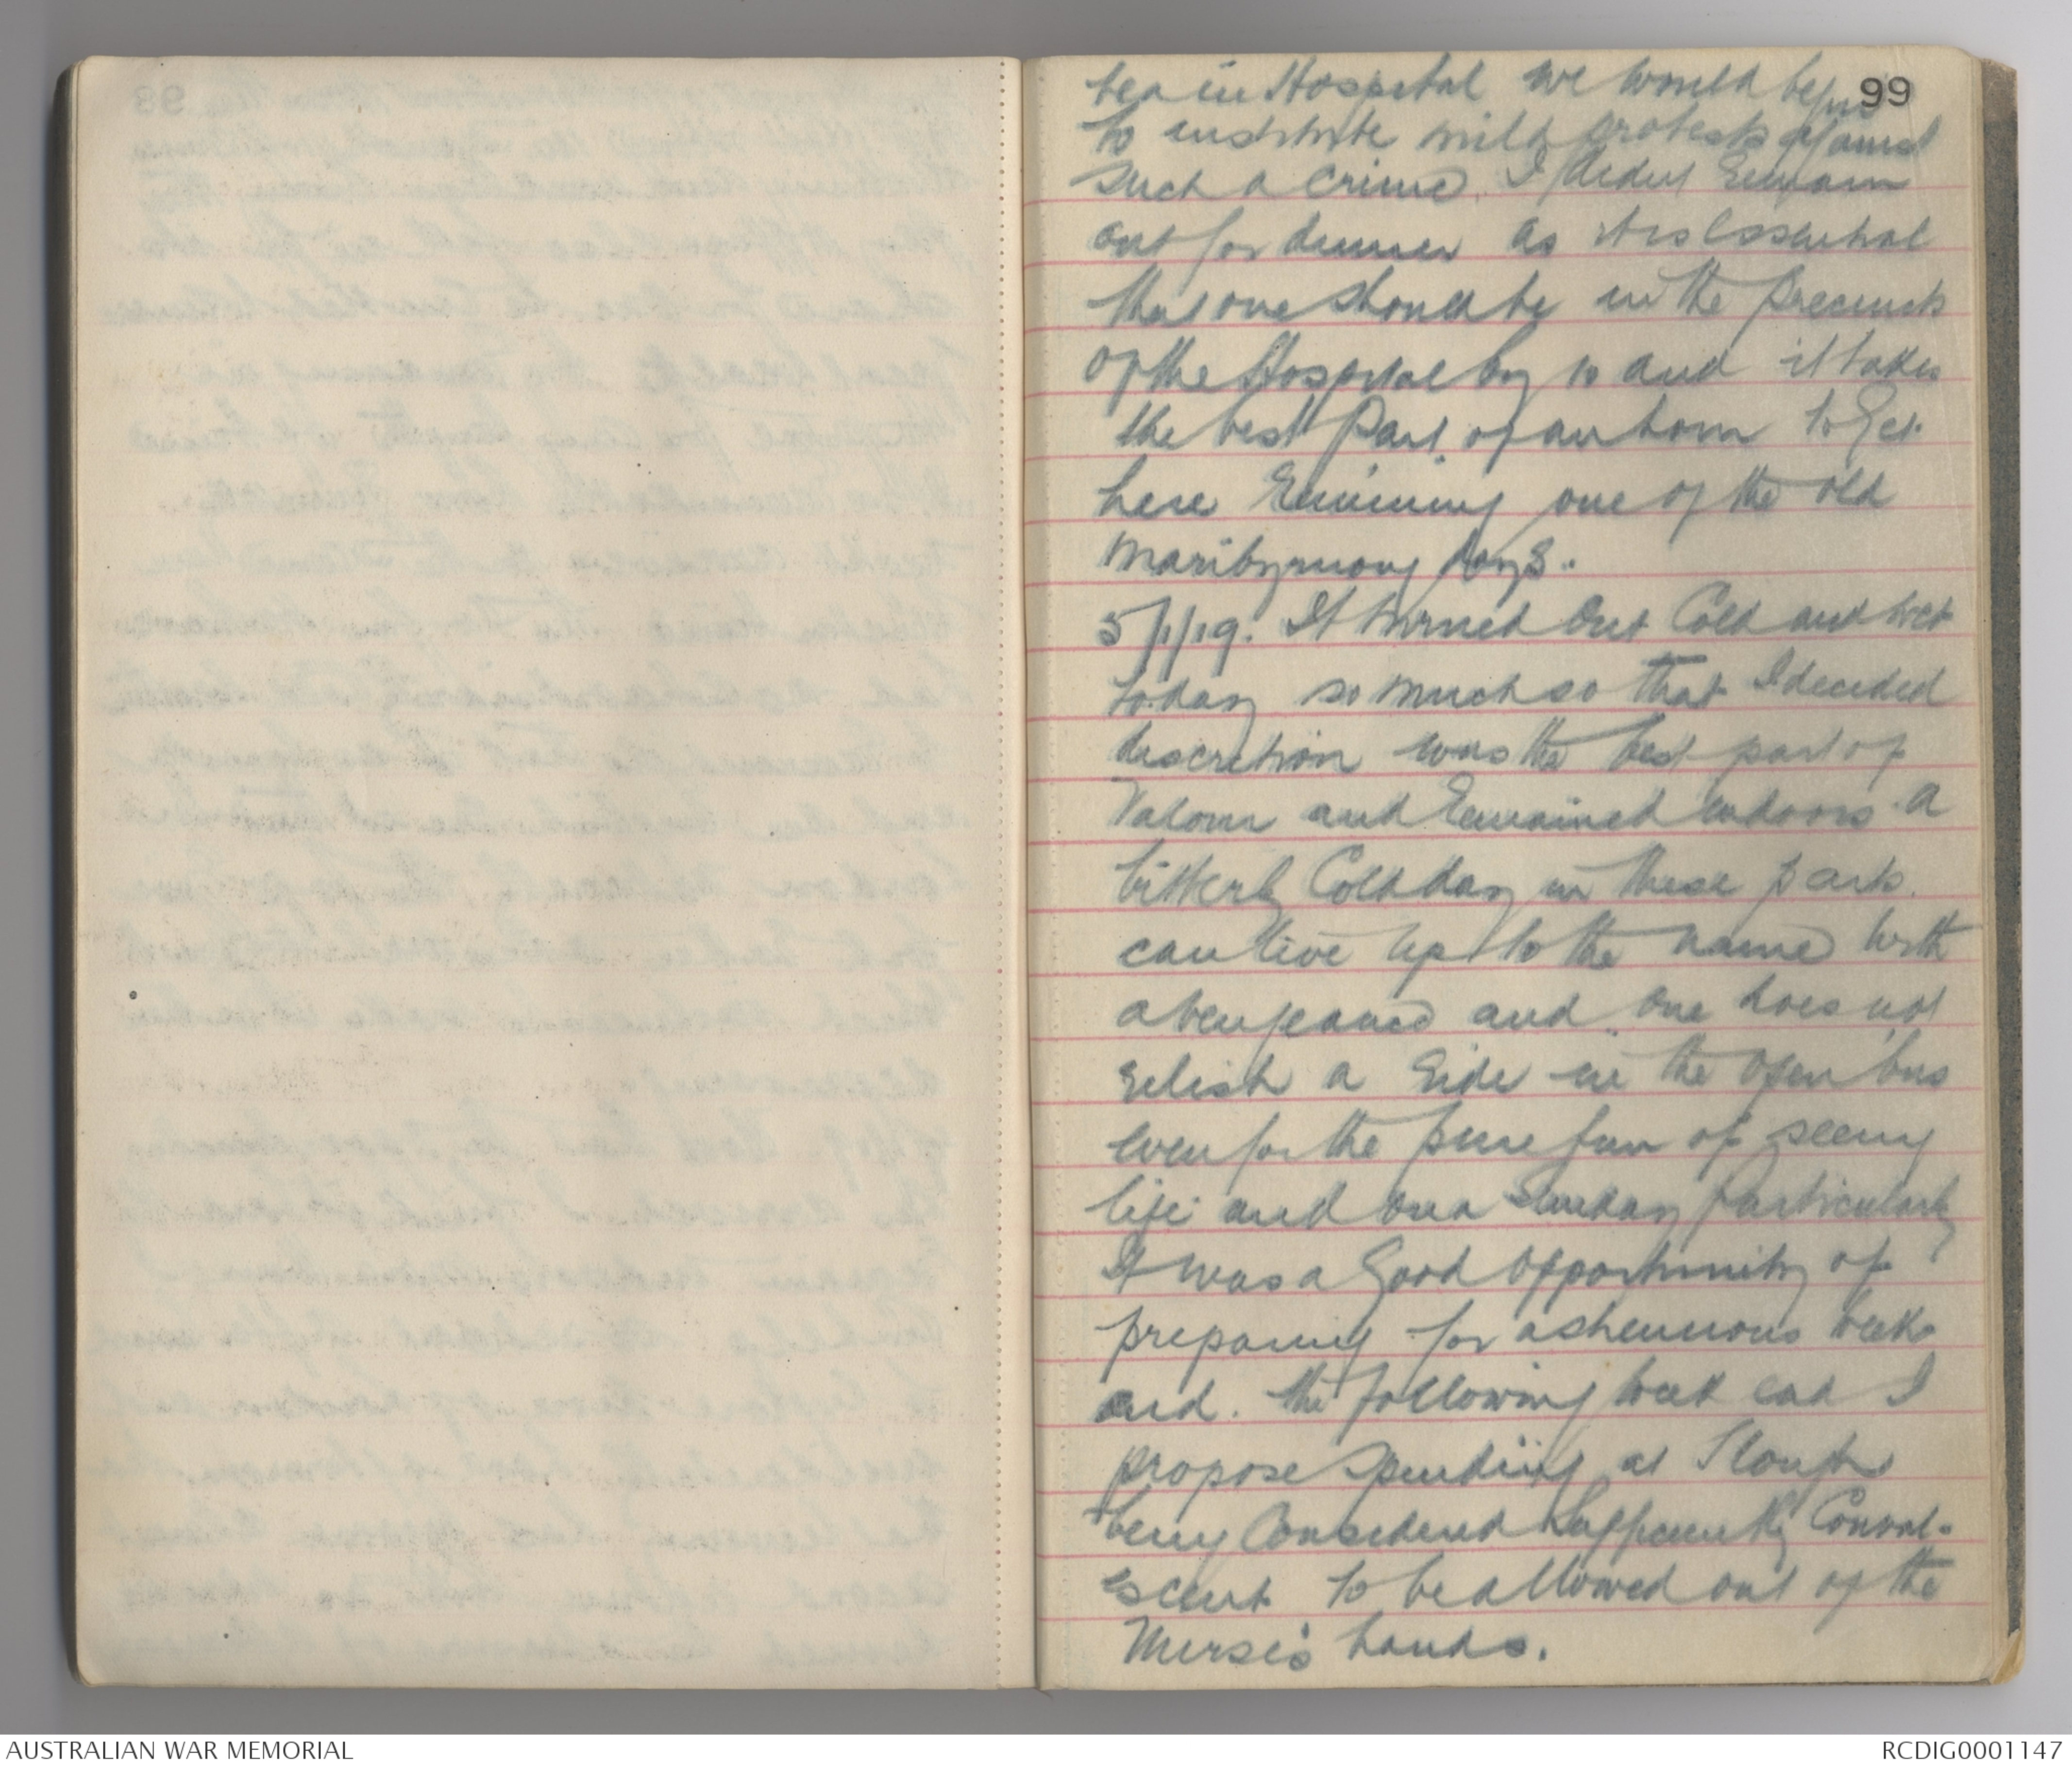 99
tea in Hospital we would begin
to institute mild protests against
such a crime. I didnt remain
out for dinner as its essential
that one should be in the precincts
of the Hospital by 10 and it takes
the best part of an hour to get
here reminding one of the old
Maribyrnong days.
5/1/19. It turned out cold and wet
today so much so that I decided
discretion was the best part of
Valour and remained indoors. A
bitterly cold day in these parts
can live up to the name with
a vengeance and one does not
relish a ride in the open bus
even for the pure fun of seeing
life and on a Sunday particularly
It was a good opportunity of
preparing for a strenuous week
and. the following week end I
propose spending at Slough
being considered sufficiently Conval-
escent to be allowed out of the
Nurse's hands.
AUSTRALIAN WAR MEMORIAL
RCDIG0001147